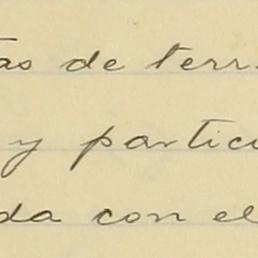 tas de terr
y particu
da con el